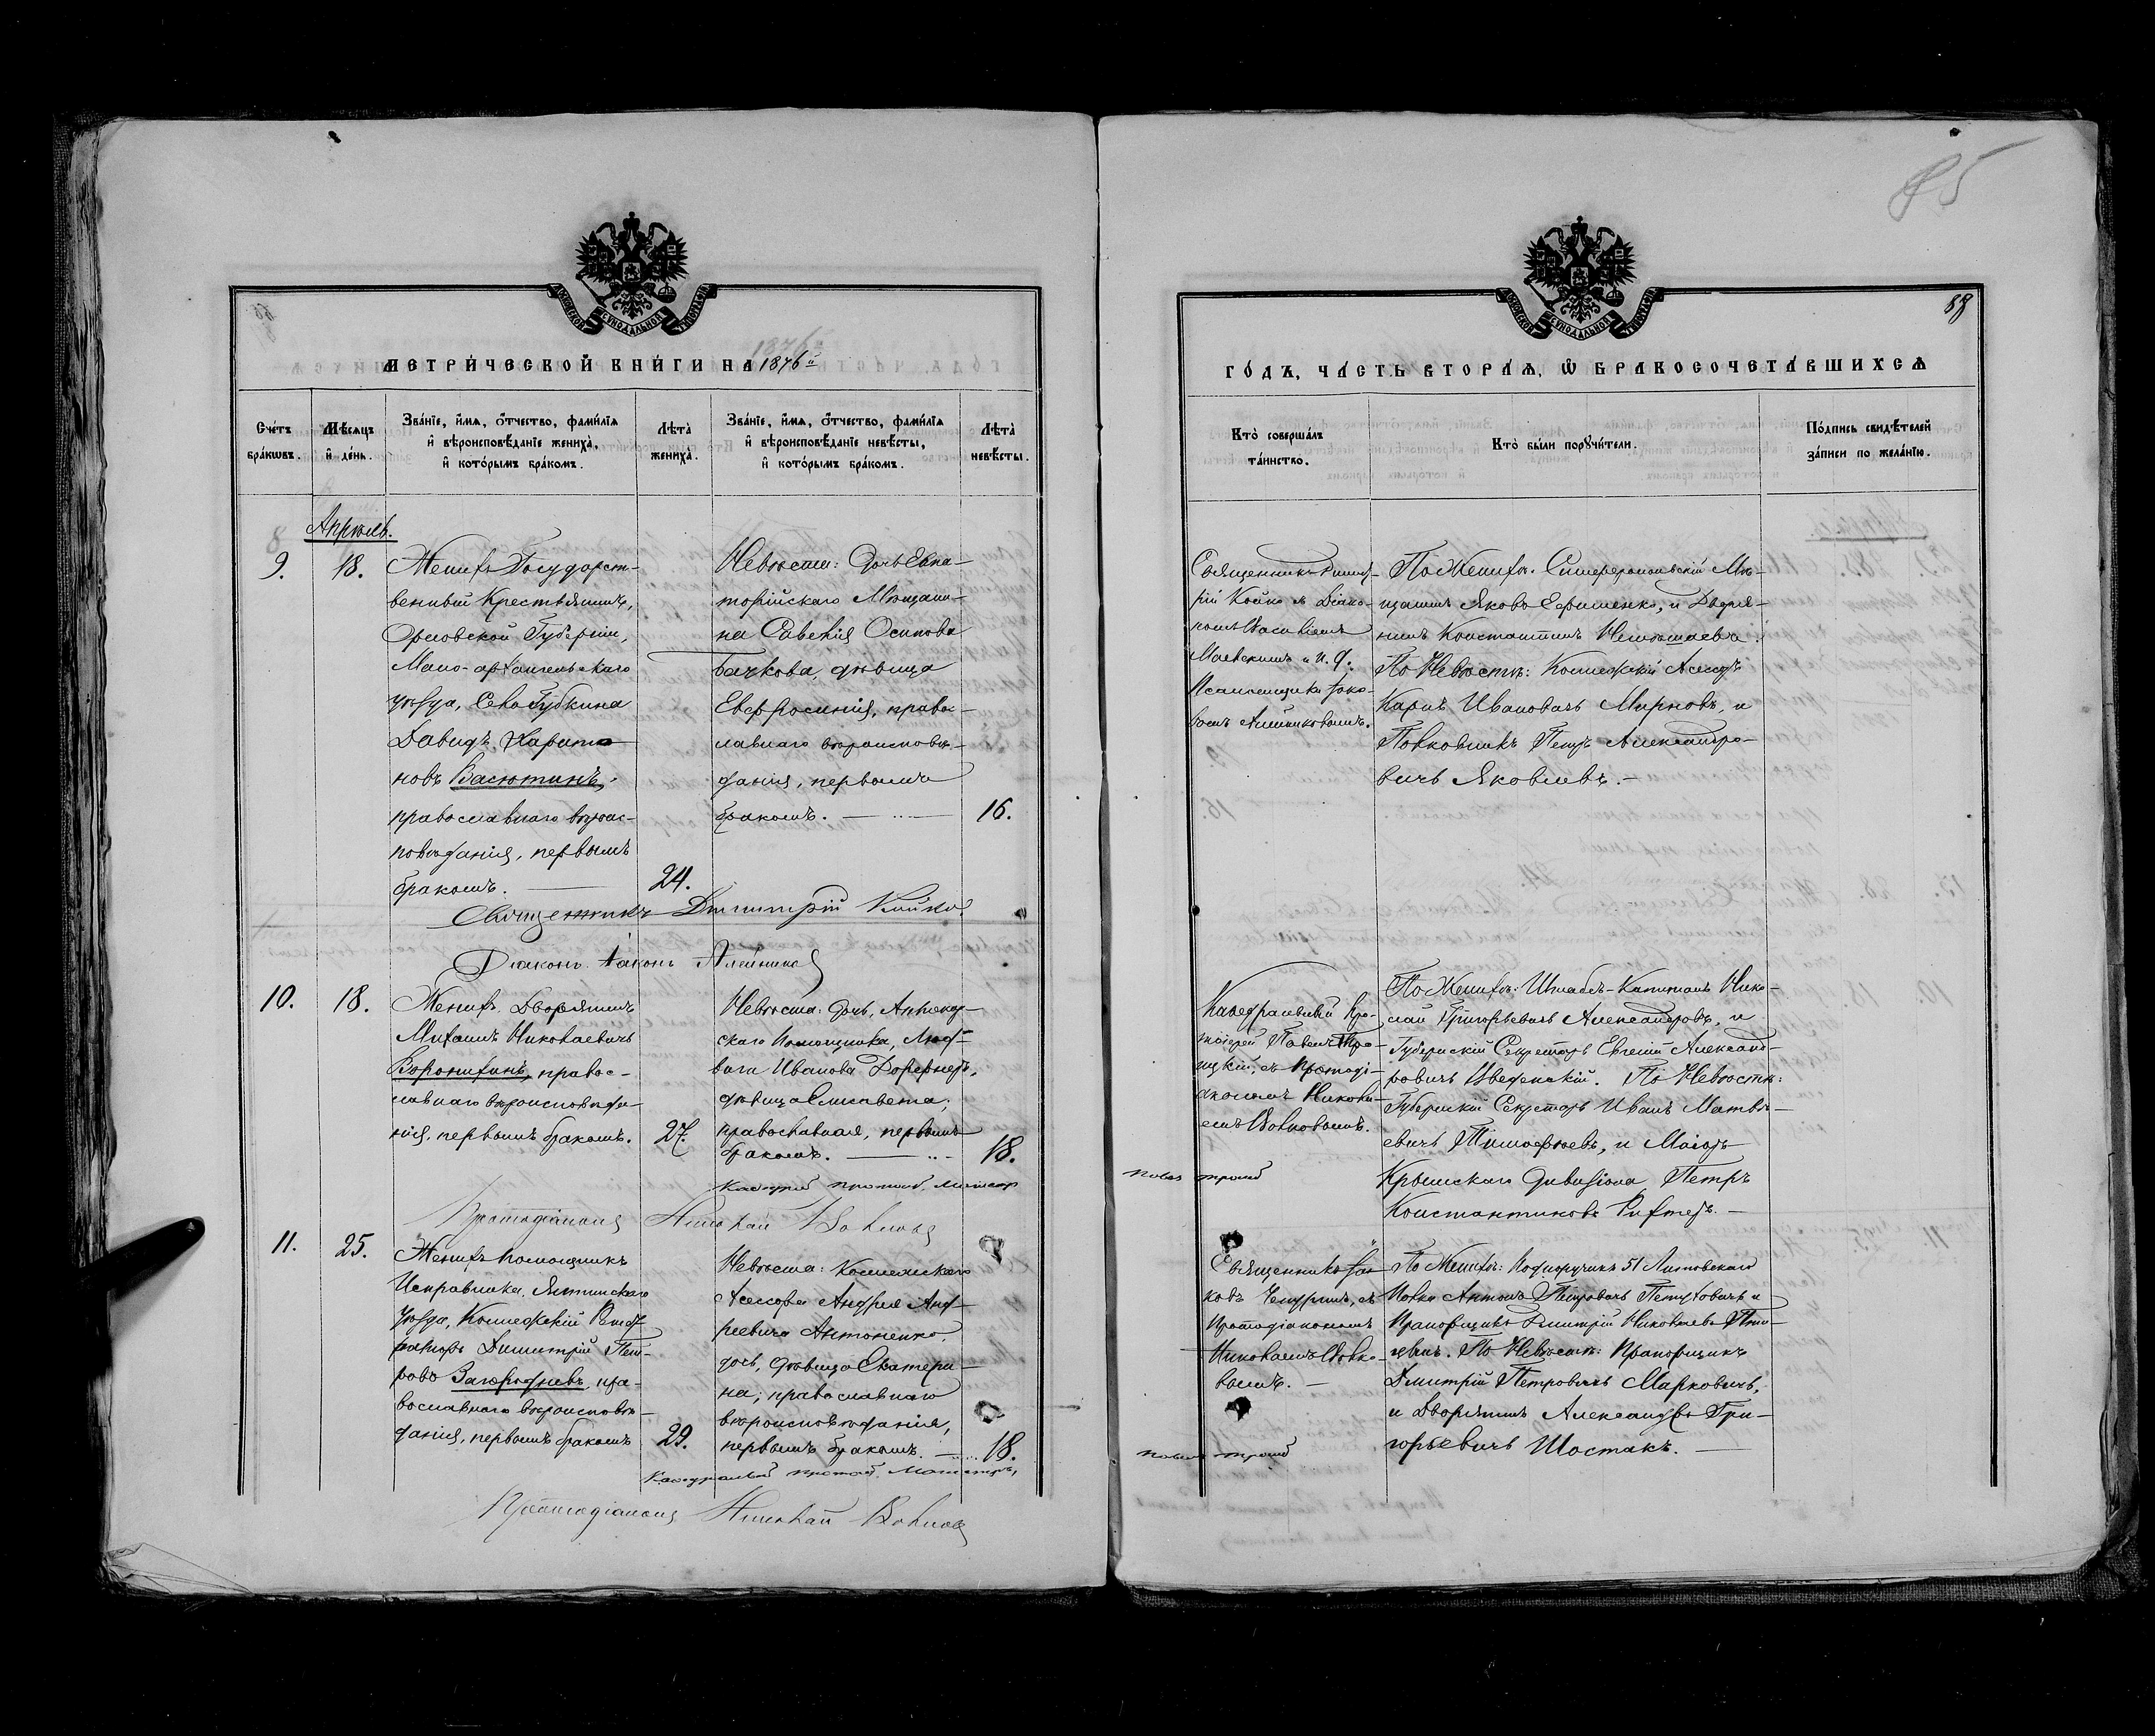 МОСКОВСКОЙ СУНОДАЛЬНОЙ ТИПОГРАФІИ
МЕТРИ́ЧЕСКОЙ КНИ́ГИ НА 1876й
Сче́тъ бра́кѡвъ.
Мѣ́сяцъ и҆ де́нь.
Зва́нїе, и҆́мѧ, ѻ҆́тчество, фами́лїѧ и҆ вѣроисповѣ́данїе жениха̀, и҆ кото́рымъ бра́комъ.
Лѣ́та жениха̀.
Зва́нїе, и҆́мѧ, ѻ҆́тчество, фами́лїѧ и҆ вѣроисповѣ́данїе невѣ́сты, и҆ кото́рымъ бра́комъ.
Лѣ́та невѣ́сты.
Апрѣль.
9.
18.
Женихъ Государст-
венный Крестьянинъ,
Орловской Губерніи,
Мало-архангельскаго
уѣзда, Села Губкина
Давидъ Харито
новъ Васютинъ,
православнаго вѣроис-
повѣданія, первымъ
бракомъ.
24.
Невѣста: дочь Евпа-
торійскаго Мѣщани-
на Евгенія Осипова
Бачкова, дѣвица
Евфросинія, правос-
лавнаго вѣроисповѣ-
данія, первымъ
бракомъ.
16.
Священникъ Димитрій Койко
Діаконъ Іаковъ Алейников
10.
18.
Женихъ, Дворянинъ
Михаилъ Николаевичъ
Воронихинъ, правос-
лавнаго вѣроисповѣда-
нія, первымъ бракомъ.
27.
Невѣста: дочь,
скаго Помощника, Люд-
вига Иванова
дѣвица Елисавета,
православная, первымъ
бракомъ.
18.
Протодіаконъ Николай Волковъ
11.
25.
Женихъ Помощникъ
Исправника, Ялтинскаго
Уѣзда, Коллежскій Регист-
раторъ Димитрій Пет-
ровъ Загородневъ, пра-
вославнаго вѣроисповѣ-
данія, первымъ бракомъ
29.
Невѣста: Коллежскаго
Ассесора Андрея Анд-
реевича Антоненко,
дочь, дѣвица Екатери-
на, православнаго
вѣроисповѣданія,
первымъ бракомъ.
18.
Протодіаконъ Николай Волковъ
85
88
МОСКОВСКОЙ СУНОДАЛЬНОЙ ТИПОГРАФІИ
ГО́ДЪ, ЧА́СТЬ ВТОРА́Ѧ, Ѽ БРАКОСОЧЕТА́ВШИХСѦ
Кто̀ соверша́лъ та́инство.
Кто̀ бы́ли порꙋчи́тели.
По́дпись свидѣ́телей за́писи по жела́нїю.
Священникъ Димит-
рій Койко съ Діако-
номъ Василіемъ
Маевскимъ и и. д.
Псаломщика Іако-
вомъ Алейниковымъ.
По Женихѣ: Симферопольскій Мѣ-
щанинъ Яковъ Ефименко, и Дворя-
нинъ Константинъ
По Невѣстѣ: Коллежскій Асессоръ
Карпъ Ивановичъ Мирновъ, и
Полковникъ Петръ Александро-
вичъ Яковлевъ.
Каѳедральный Про-
тоіерей Павелъ Тро-
ицкій, съ Протоді-
акономъ Никола-
емъ Волковымъ.
По Женихѣ: Штабсъ-Капитанъ Нико-
лай Григорьевичъ Александровъ, и
Губернскій Секретарь Евгеній Александ-
ровичъ Введенскій. По Невѣстѣ:
Губернскій Секретарь Иванъ Матвѣ-
евичъ Тимофѣевъ, и Маіоръ
Крымскаго дивизіона, Петръ
Константиновъ Рихтеръ.
Священникъ Іа-
ковъ Чепуринъ, съ
Протодіакономъ
Николаемъ Волко-
вымъ.
По Женихѣ: Подпоручикъ 51 Литовскаго
Полка Антонъ Петровичъ и
Прапорщикъ Димитрій Николаевъ
По Невѣстѣ: Прапорщикъ
Дмитрій Петровичъ Марковичъ,
и Дворянинъ Александръ Гри-
горьевичъ Шостакъ.